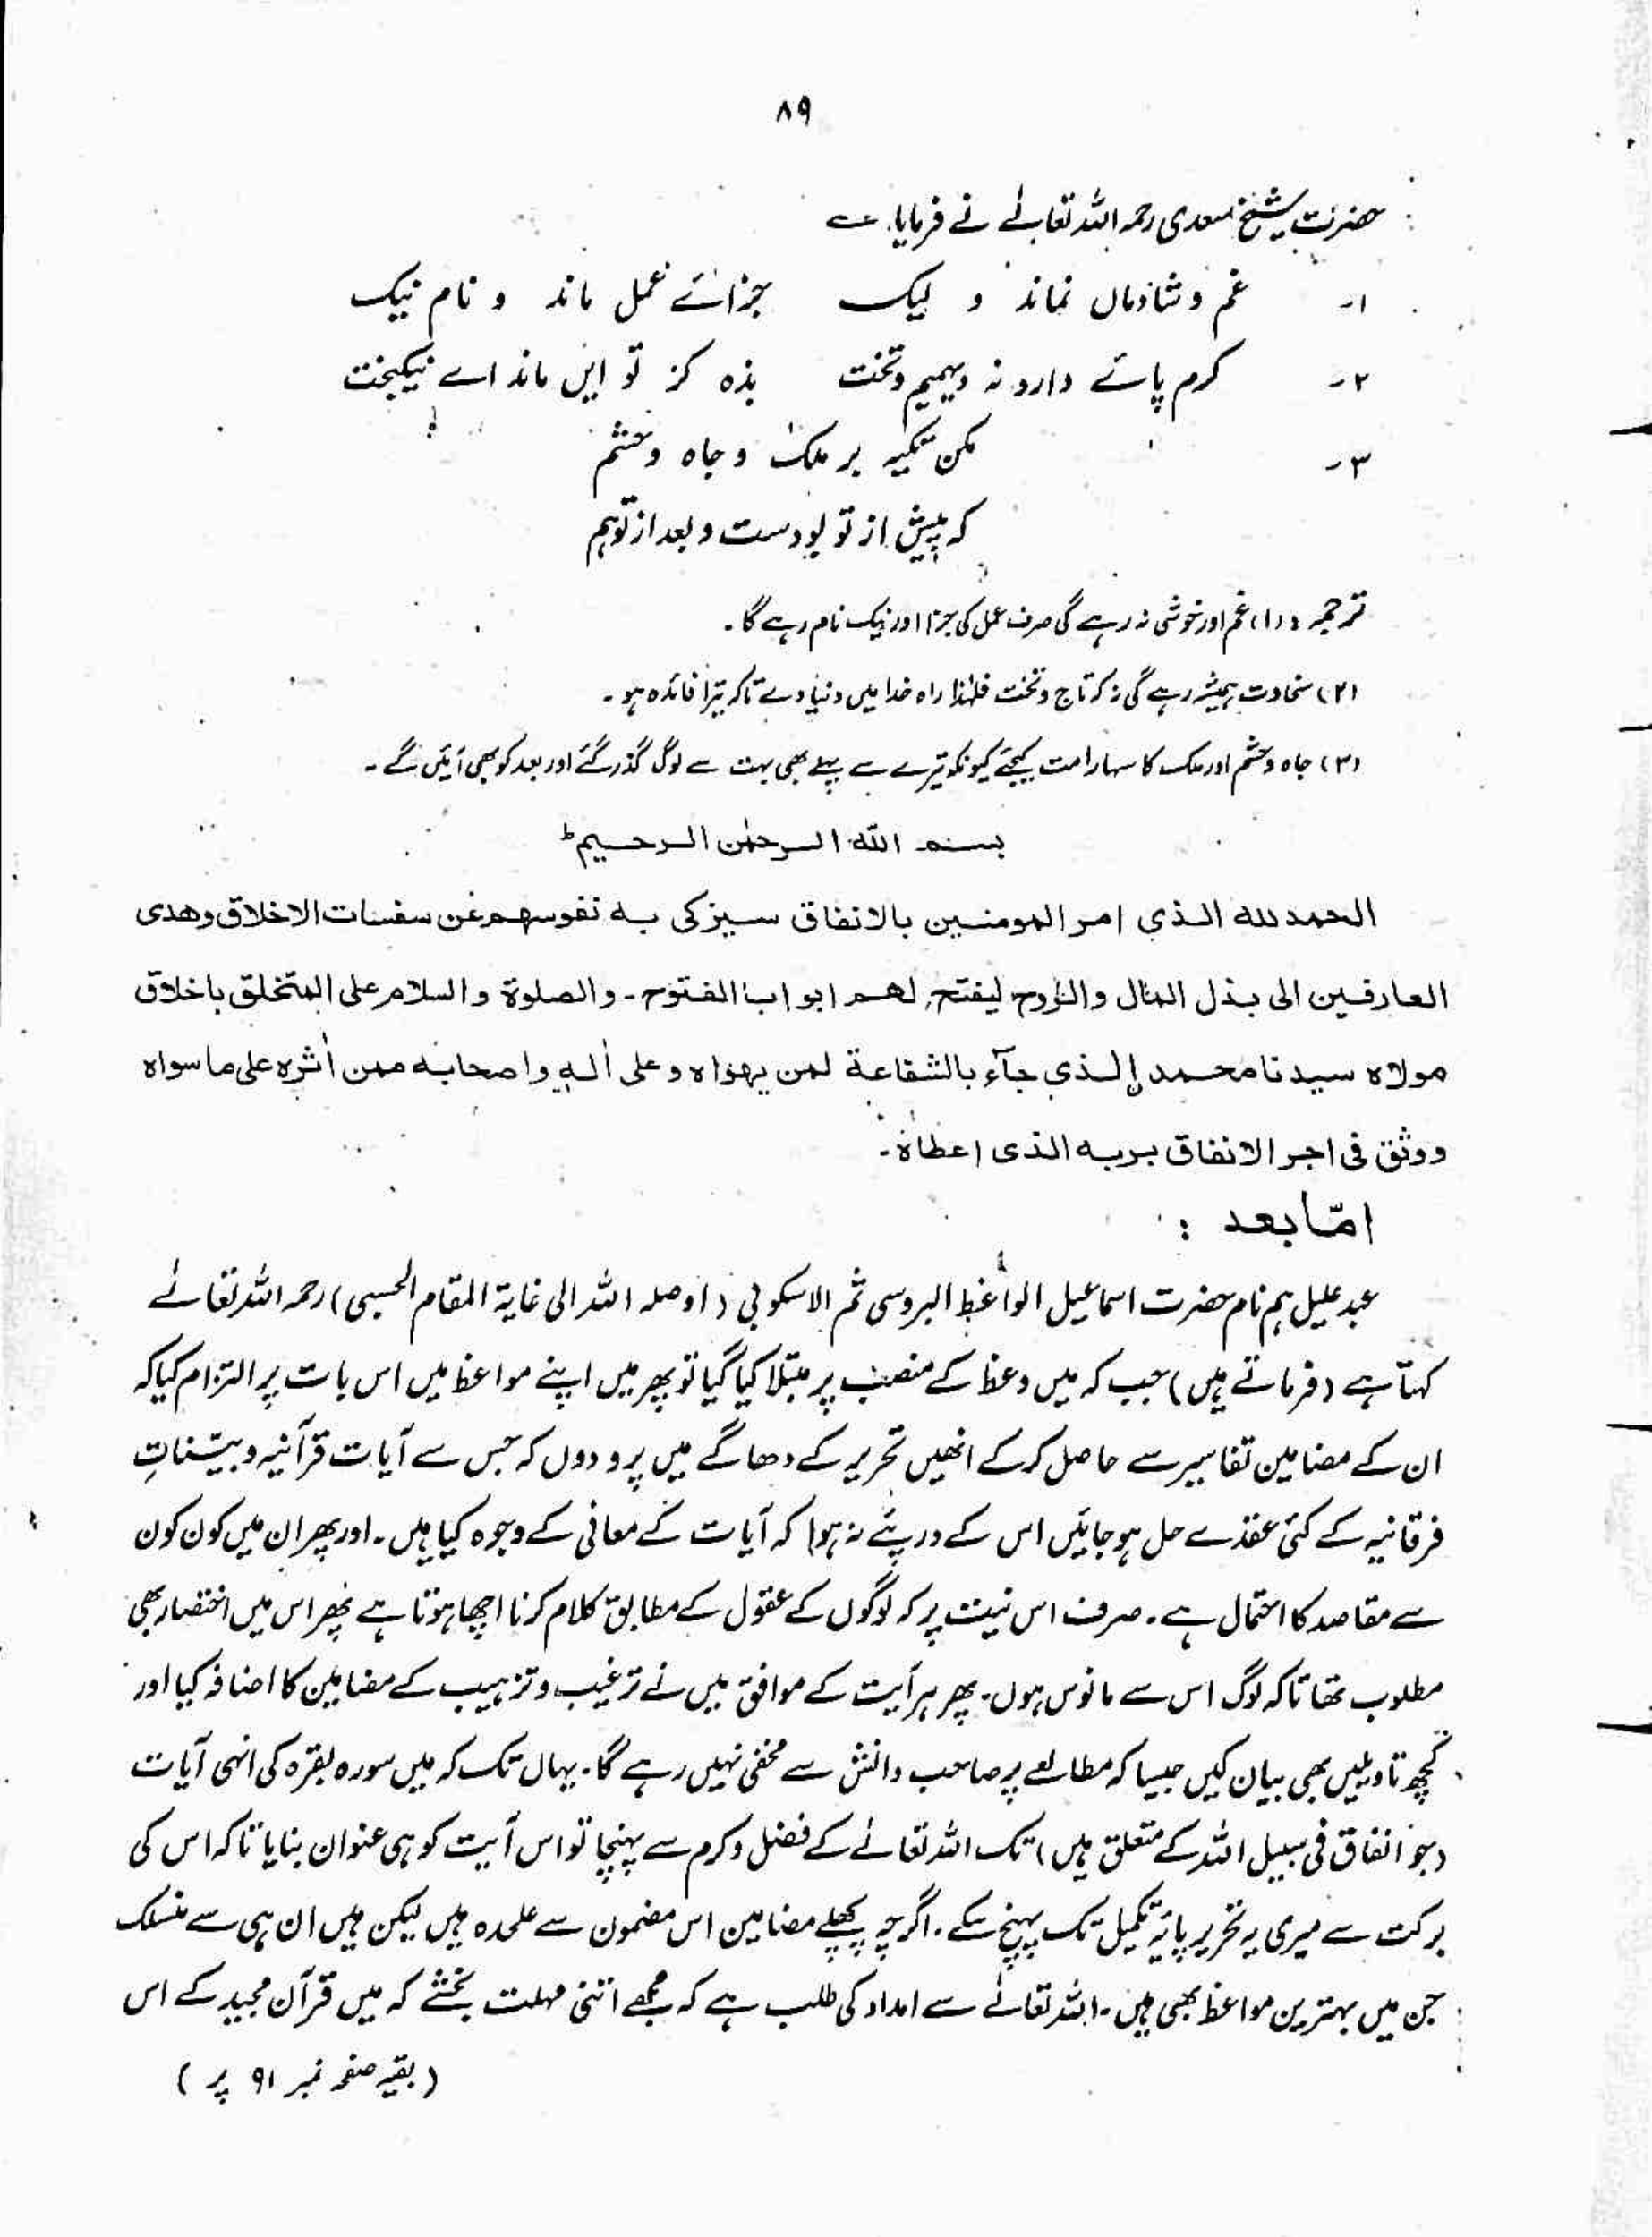 ۸۹
حضرت شیخ سعدی رحمہ اللہ تعالےٰ نے فرمایا۔ ؎
۱۔ غم و شادماں نماند و لیک جزائے عمل ماند و نام نیک
۲۔ کرم پائے دارد نہ دیہیم وتخت بدہ کز تو ایں ماند اے نیکبخت
۳۔ مکن تکیہ بر ملک و جاہ و حشم
کہ پیش از تو بودست و بعد از تو ہم
ترجمہ : (۱) غم اور خوشی نہ رہے گی صرف عمل کی جزا اور نیک نام رہے گا۔
(۲) سخاوت ہمیشہ رہے گی نہ کہ تاج و تخت فلہٰذا راہ خدا میں دنیا دے تاکہ تیرا فائدہ ہو۔
(۳) جاہ و حشم اور ملک کا سہارا مت کیجئے کیونکہ تیرے سے پہلے بھی بہت سے لوگ گذر گئے اور بعد کو بھی آئیں گے۔
بسم اللہ الرحمٰن الرحیم ط
الحمد للہ الذی امر المومنین بالانفاق سیزکی بہ نفوسھم عن سفسات الاخلاق وھدی
العارفین الی بذل المال والروح لیفتح لھم ابواب الفتوح۔ والصلوۃ والسلام علی المتخلق باخلاق
مولاہ سیدنا محمد الذی جآء بالشفاعۃ لمن یھواہ وعلی اٰلہٖ واصحابہ ممن اٰثرہ علی ماسواہ
ووثق فی اجر الانفاق بربہ الذی اعطاہ۔
امّا بعد :
عبد علیل ہم نام حضرت اسماعیل الواعظ البروسی ثم الاسکوبی (اوصلہ اللہ الی غایۃ المقام الحسبی) رحمہ اللہ تعالےٰ
کہتا ہے (فرماتے ہیں) جب کہ میں وعظ کے منصب پر مبتلا کیا گیا تو پھر میں اپنے مواعظ میں اس بات پر التزام کیا کہ
ان کے مضامین تفاسیر سے حاصل کرکے انھیں تحریر کے دھاگے میں پرو دوں کہ جس سے آیات قرآنیہ و بیّناتِ
فرقانیہ کے کئی عقدے حل ہو جائیں اس کے درپئے نہ ہوا کہ آیات کے معانی کے وجوہ کیا ہیں۔ اور پھر ان میں کون کون
سے مقاصد کا احتمال ہے۔ صرف اس نیت پر کہ لوگوں کے عقول کے مطابق کلام کرنا اچھا ہوتا ہے پھر اس میں اختصار بھی
مطلوب تھا تاکہ لوگ اس سے مانوس ہوں۔ پھر ہر آیت کے موافق میں نے ترغیب و ترہیب کے مضامین کا اضافہ کیا اور
کچھ تاویلیں بھی بیان کیں جیسا کہ مطالعے پر صاحب دانش سے مخفی نہیں رہے گا۔ یہاں تک کہ میں سورہ بقرہ کی انہی آیات
(جو انفاق فی سبیل اللہ کے متعلق ہیں) تک اللہ تعالےٰ کے فضل و کرم سے پہنچا تو اس آیت کو ہی عنوان بنایا تاکہ اس کی
برکت سے میری یہ تحریر پایۂ تکمیل تک پہنچ سکے۔ اگرچہ پچھلے مضامین اس مضمون سے علٰحدہ ہیں لیکن ہیں ان ہی سے منسلک
جن میں بہترین مواعظ بھی ہیں۔ اللہ تعالےٰ سے امداد کی طلب ہے کہ مجھے اتنی مہلت بخشے کہ میں قرآن مجید کے اس
(بقیہ صفحہ نمبر ۹۱ پر)